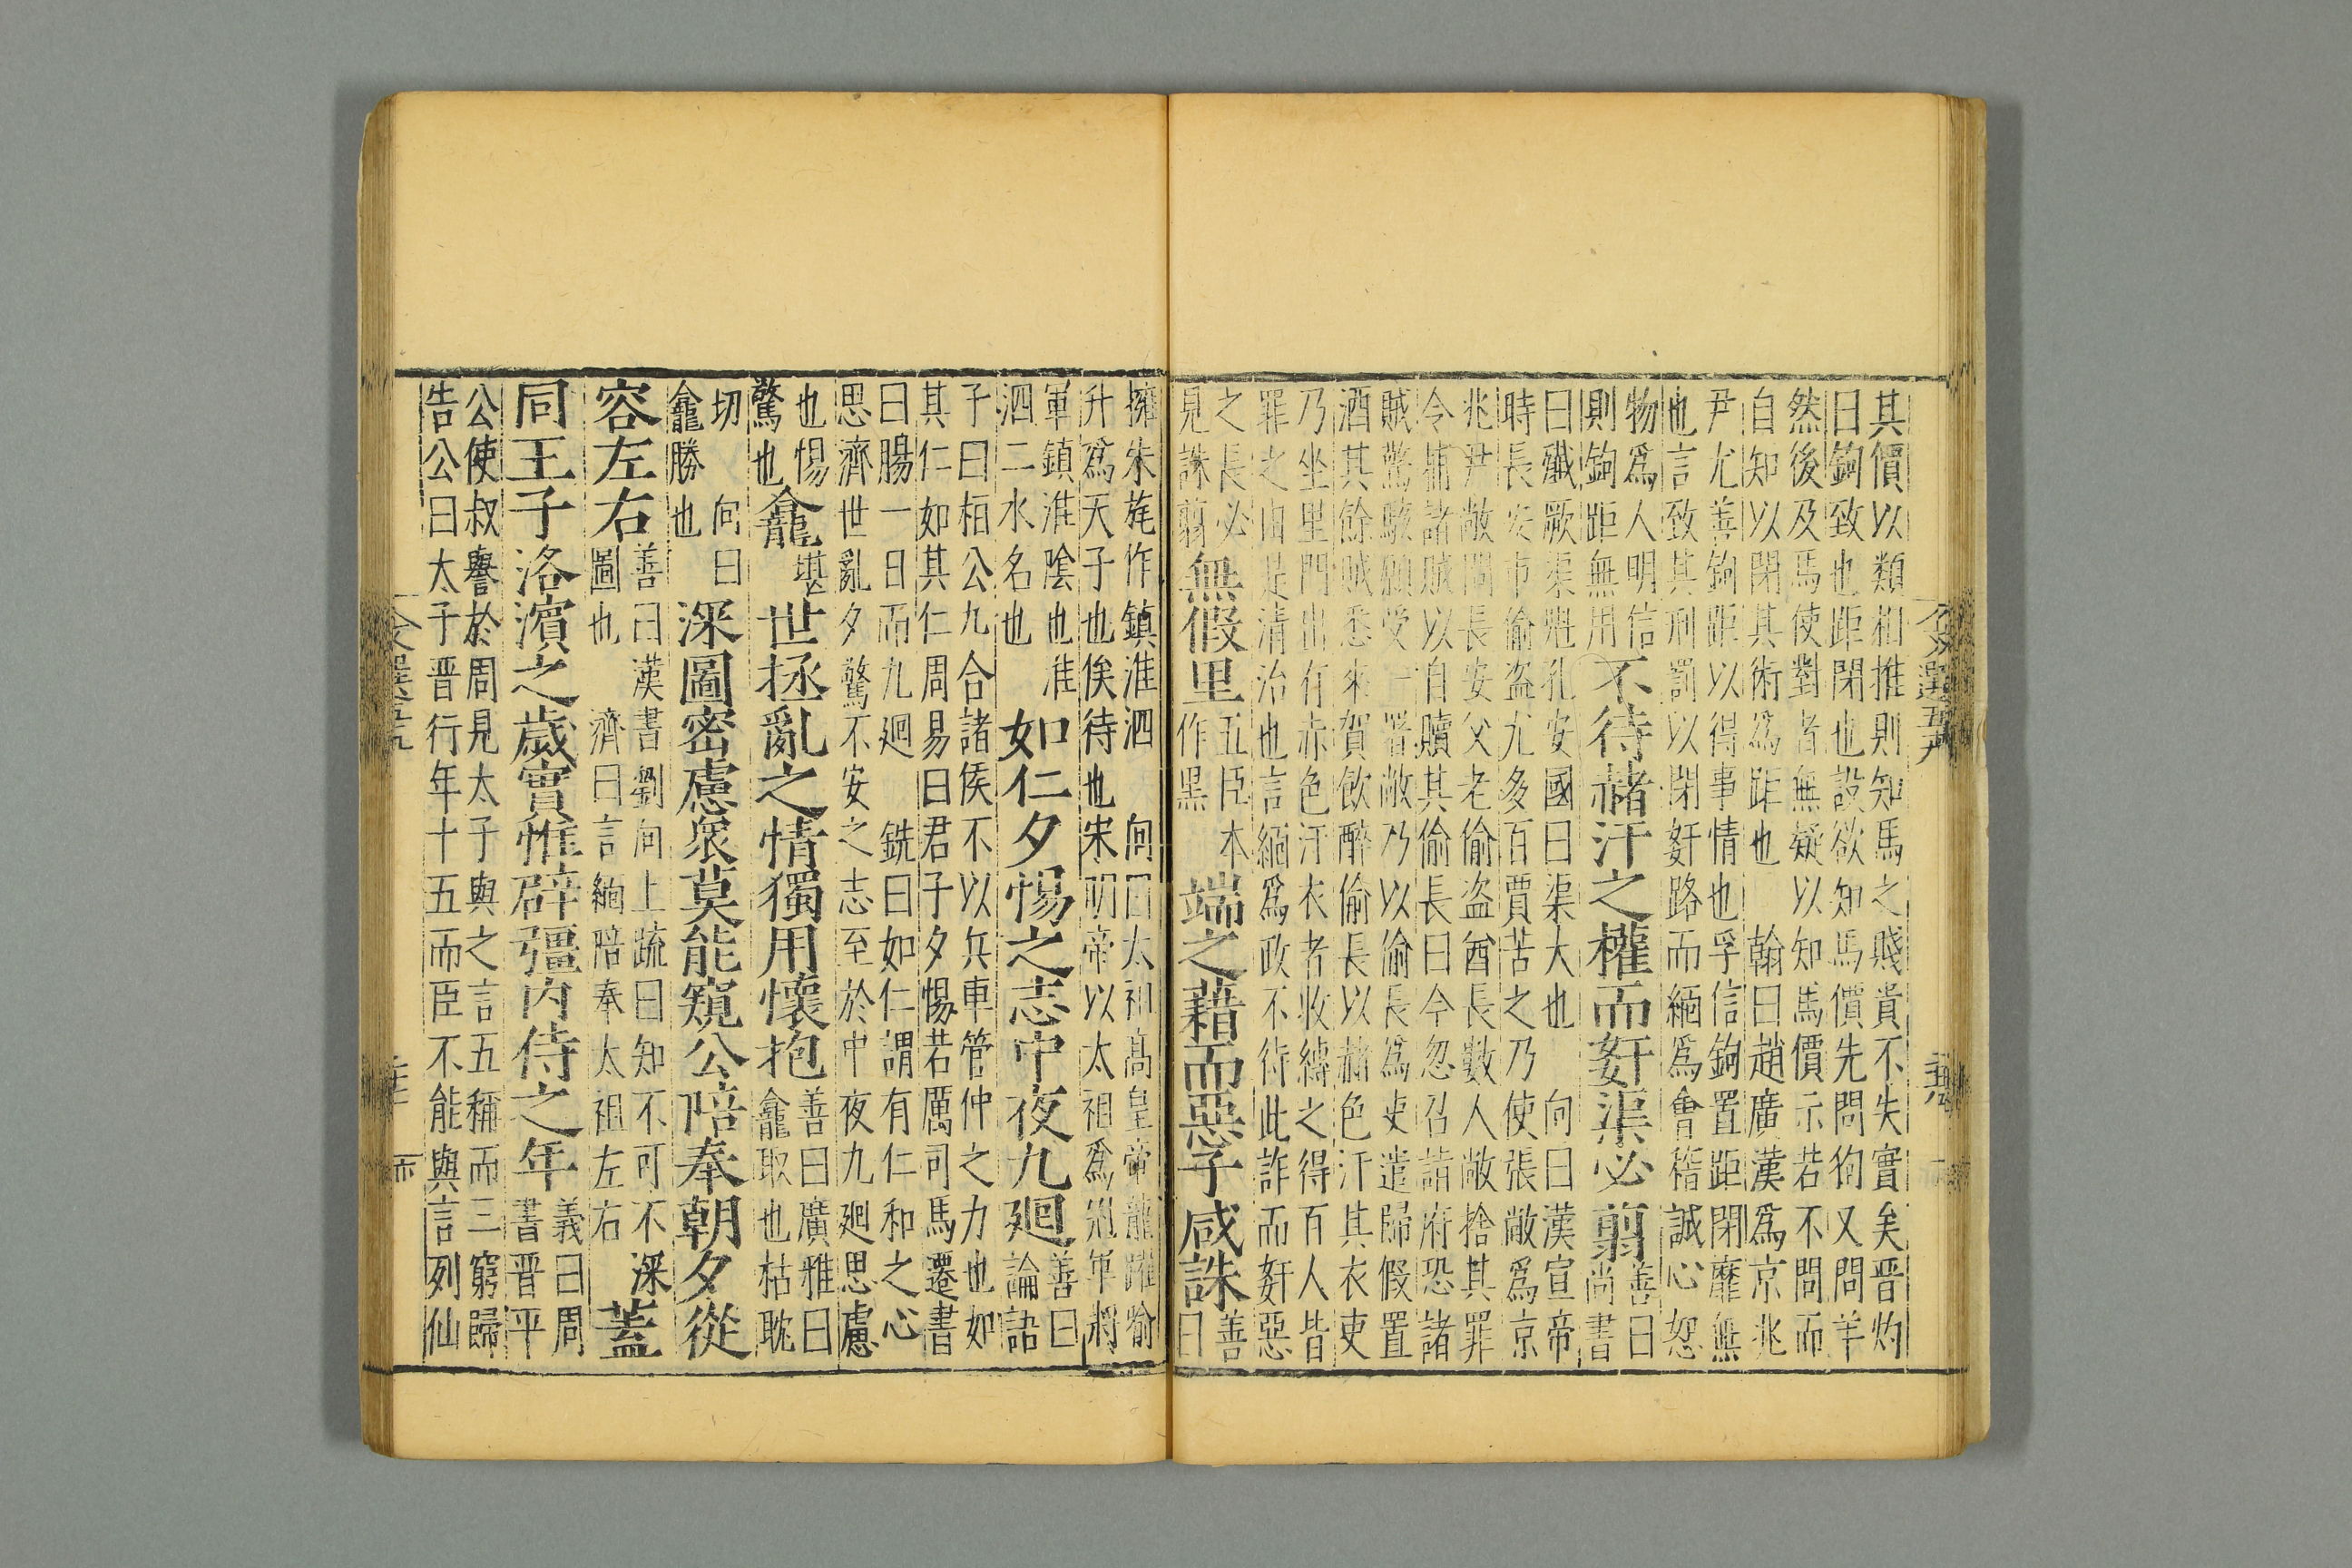 其價以類相推則知馬之賤貴不失實矣晋灼
曰鉤致也距閉也設欲知馬價先問狗又問羊
然後及馬使對者無疑以知馬價示若不問而
自知以閉其術爲距也 翰曰趙廣漢爲京兆
尹尤善鉤距以得事情也孚信鉤置距閉靡無
也言致其刑罰以閉姧路而緬爲會稽誠心恕
物爲人明信
則鉤距無用
不待赭汙之權而姧渠必翦
善曰
尚書
曰殲厥渠魁孔安國曰渠大也 向曰漢宣帝
時長安市偷盗尤多百賈苦之乃使張敞爲京
兆尹敞問長安父老偷盗酋長數人敞捨其罪
令捕諸賊以自贖其偷長曰今忽召請府恐諸
賊驚駭願受一署敞乃以偷長爲吏遣歸假置
酒其餘賊悉來賀飲醉偷長以赭色汙其衣吏
乃坐里門出有赤色汙衣者收縛之得百人皆
罪之由是清治也言緬爲政不待此詐而姧惡
之長必
見誅翦
無假里
五臣本
作黑
端之藉而惡子咸誅
善
曰
擁朱旄作鎮淮泗 向曰太祖高皇帝龍躍喻
升爲天子也俟待也宋明帝以太祖爲冠軍將
軍鎮淮陰也淮
泗二水名也
如仁夕惕之志中夜九廻
善曰
論語
子曰桓公九合諸侯不以兵車管仲之力也如
其仁如其仁周易曰君子夕惕若厲司馬遷書
曰腸一日而九廻 銑曰如仁謂有仁和之心
思濟世亂夕驚不安之志至於中夜九廻思慮
也惕
驚也
龕
堪
世拯亂之情獨用懷抱
善曰廣雅曰
龕取也枯耽
切 向曰
龕勝也
深圖密慮衆莫能窺公陪奉朝夕從
容左右
善曰漢書劉向上疏曰知不可不深
圖也 濟曰言緬陪奉太祖左右
蓋
同王子洛濱之歲實惟辟彊内侍之年
義曰周
書晋平
公使叔譽於周見太子與之言五稱而三窮歸
告公曰太子晋行年十五而臣不能與言列仙